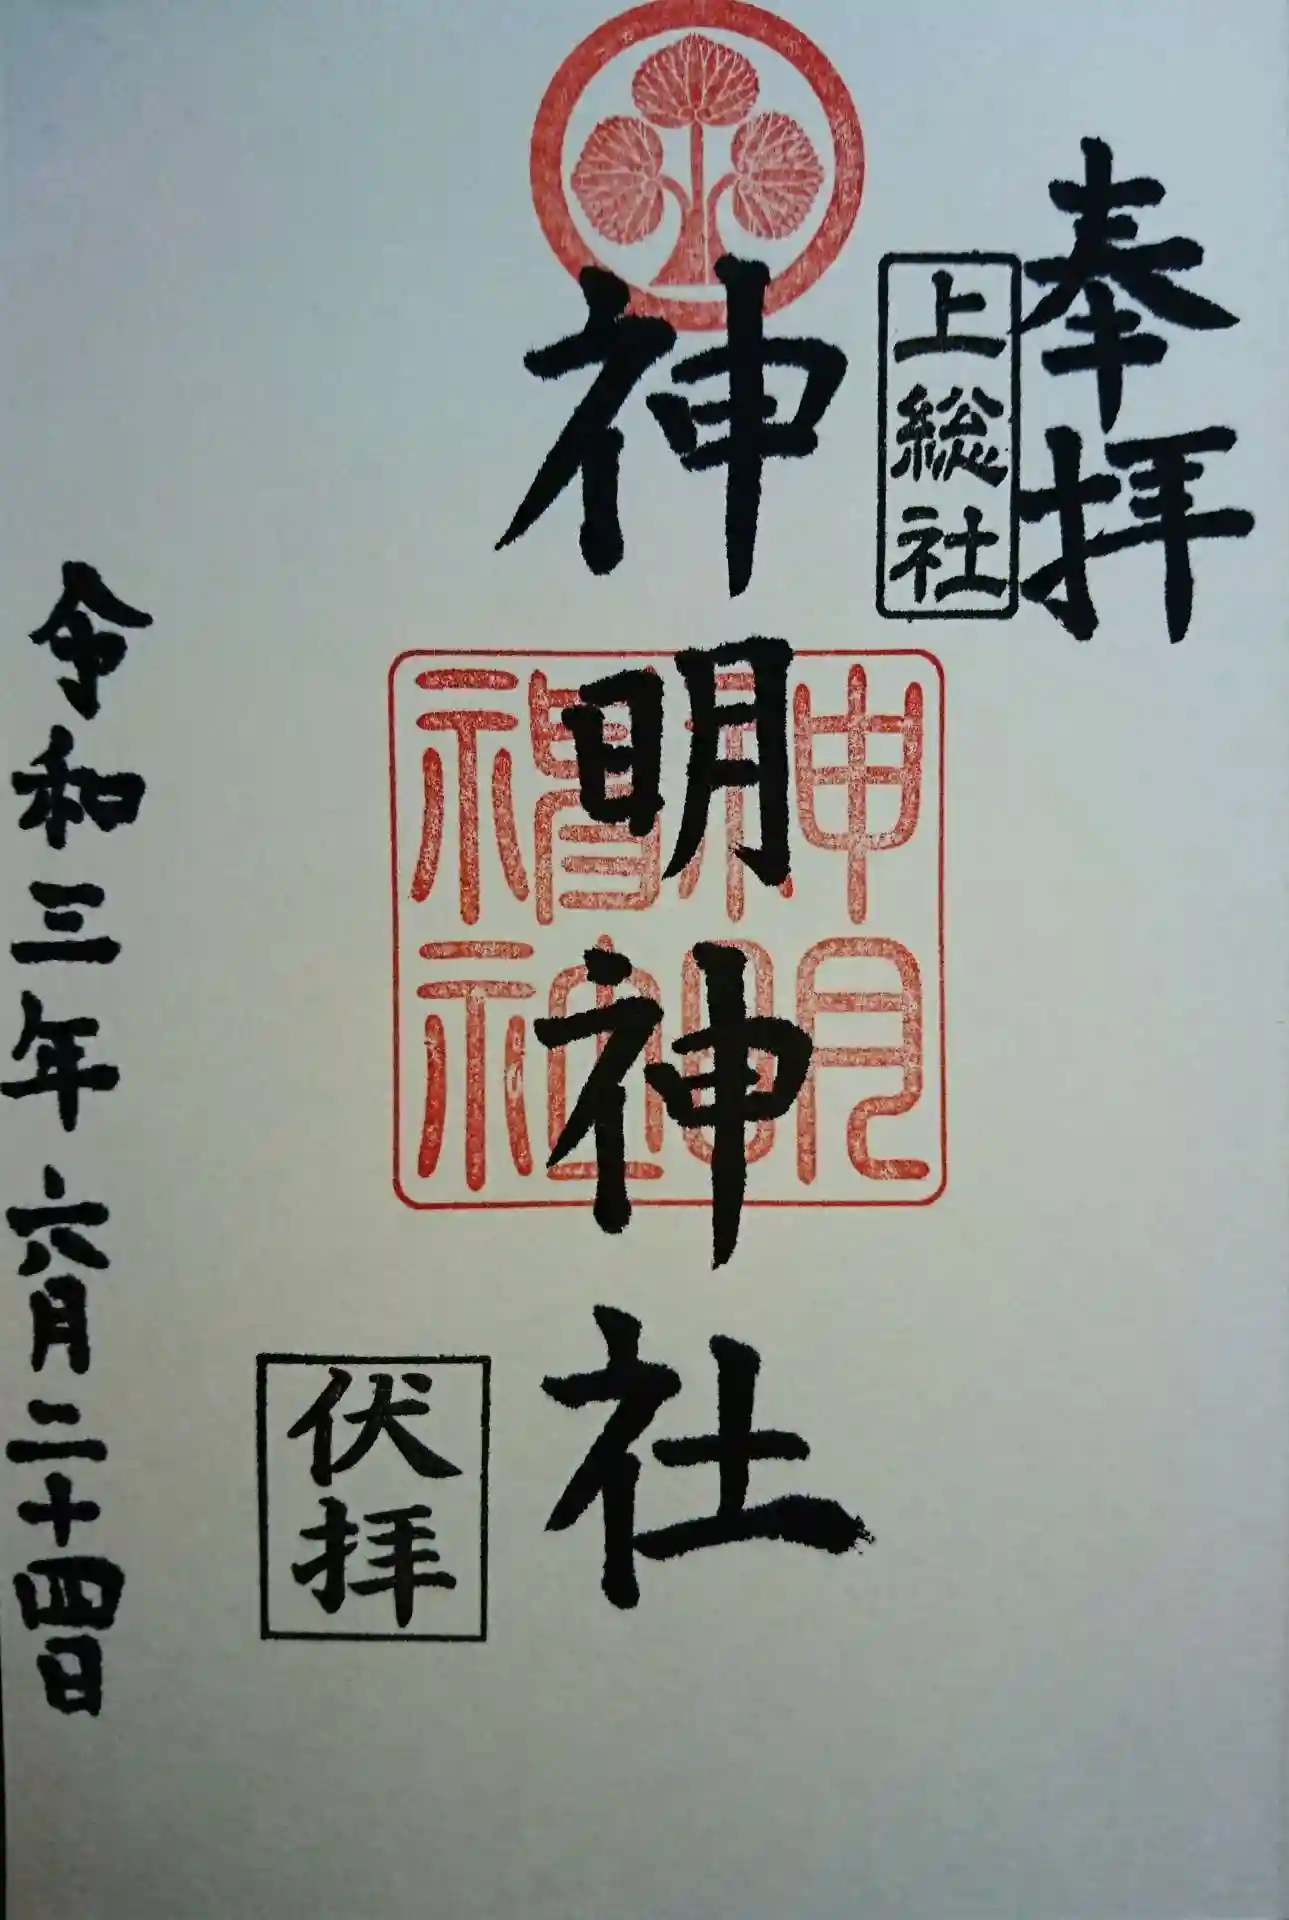 奉拝
上総社
神明神社
神明
神社
伏拝
令和三年六月二十四日